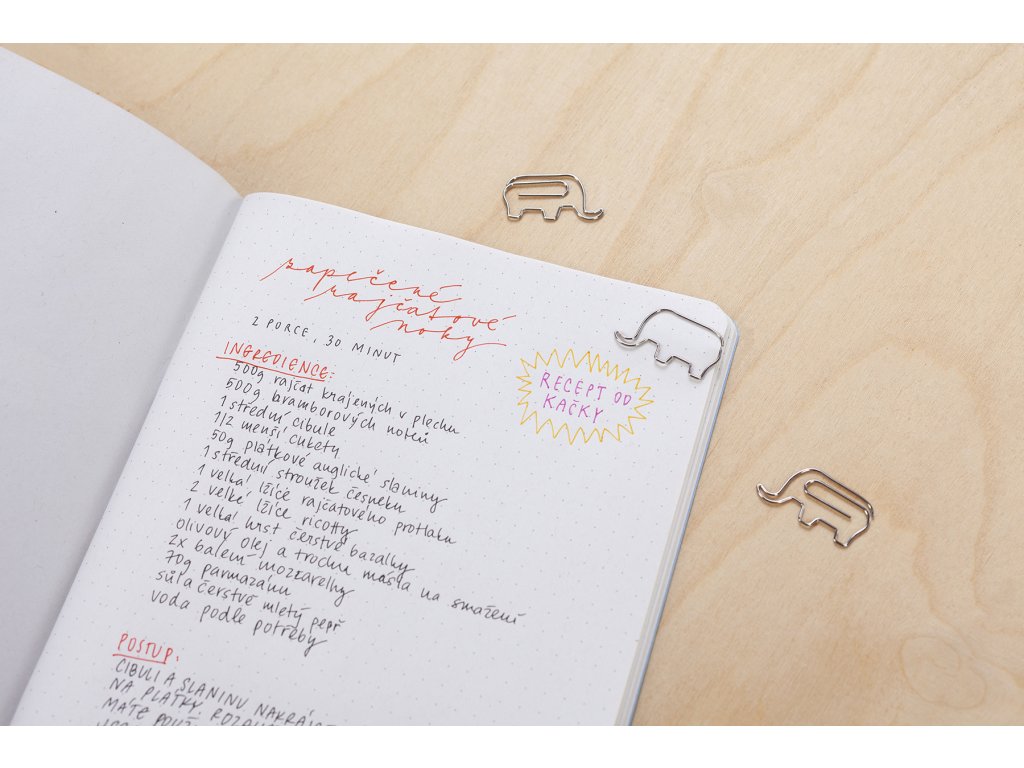 zapečené
rajčatové
noky
2 PORCE, 30 MINUT
INGREDIENCE:
500g rajčat krajených v plechu
500g bramborových noků
1 střední cibule
1/2 menší cukety
50g plátkové anglické slaniny
1 střední stroužek česneku
1 velká lžíce rajčatového protlaku
2 velké lžíce ricotty
1 velká hrst čerstvé bazalky
olivový olej a trochu másla na smažení
2x balení mozzarelly
70g parmazánu
sůl a čerstvě mletý pepř
voda podle potřeby
RECEPT OD
KAČKY
POSTUP:
CIBULI A SLANINU
NA PLÁTKY.
MÁTE